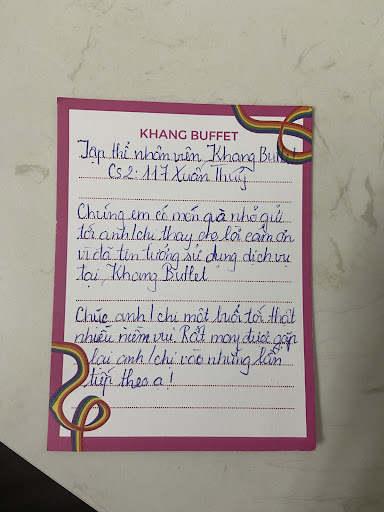 KHANG BUFFET
Tập thể nhân viên Khang Buffet
CS2: 117 Xuân Thuỷ
Chúng em có món quà nhỏ gửi
tới anh/chị thay cho lời cảm ơn
vì đã tin tưởng sử dụng dịch vụ
tại Khang Buffet
Chúc anh/chị một buổi tối thật
nhiều niềm vui. Rất mong được gặp
lại anh/chị vào những lần
tiếp theo ạ!